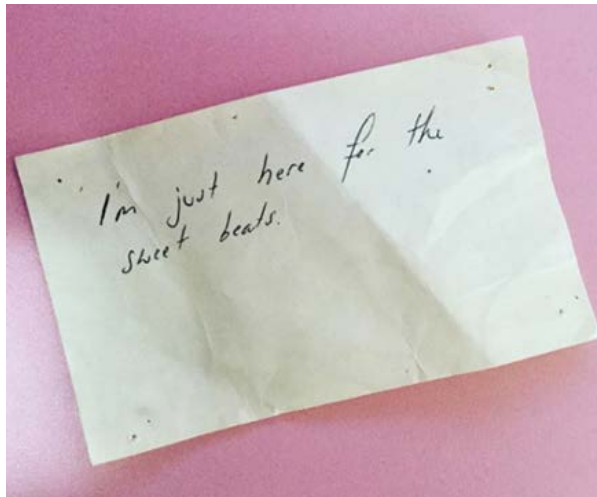 I'm just here for the
sweet beats.